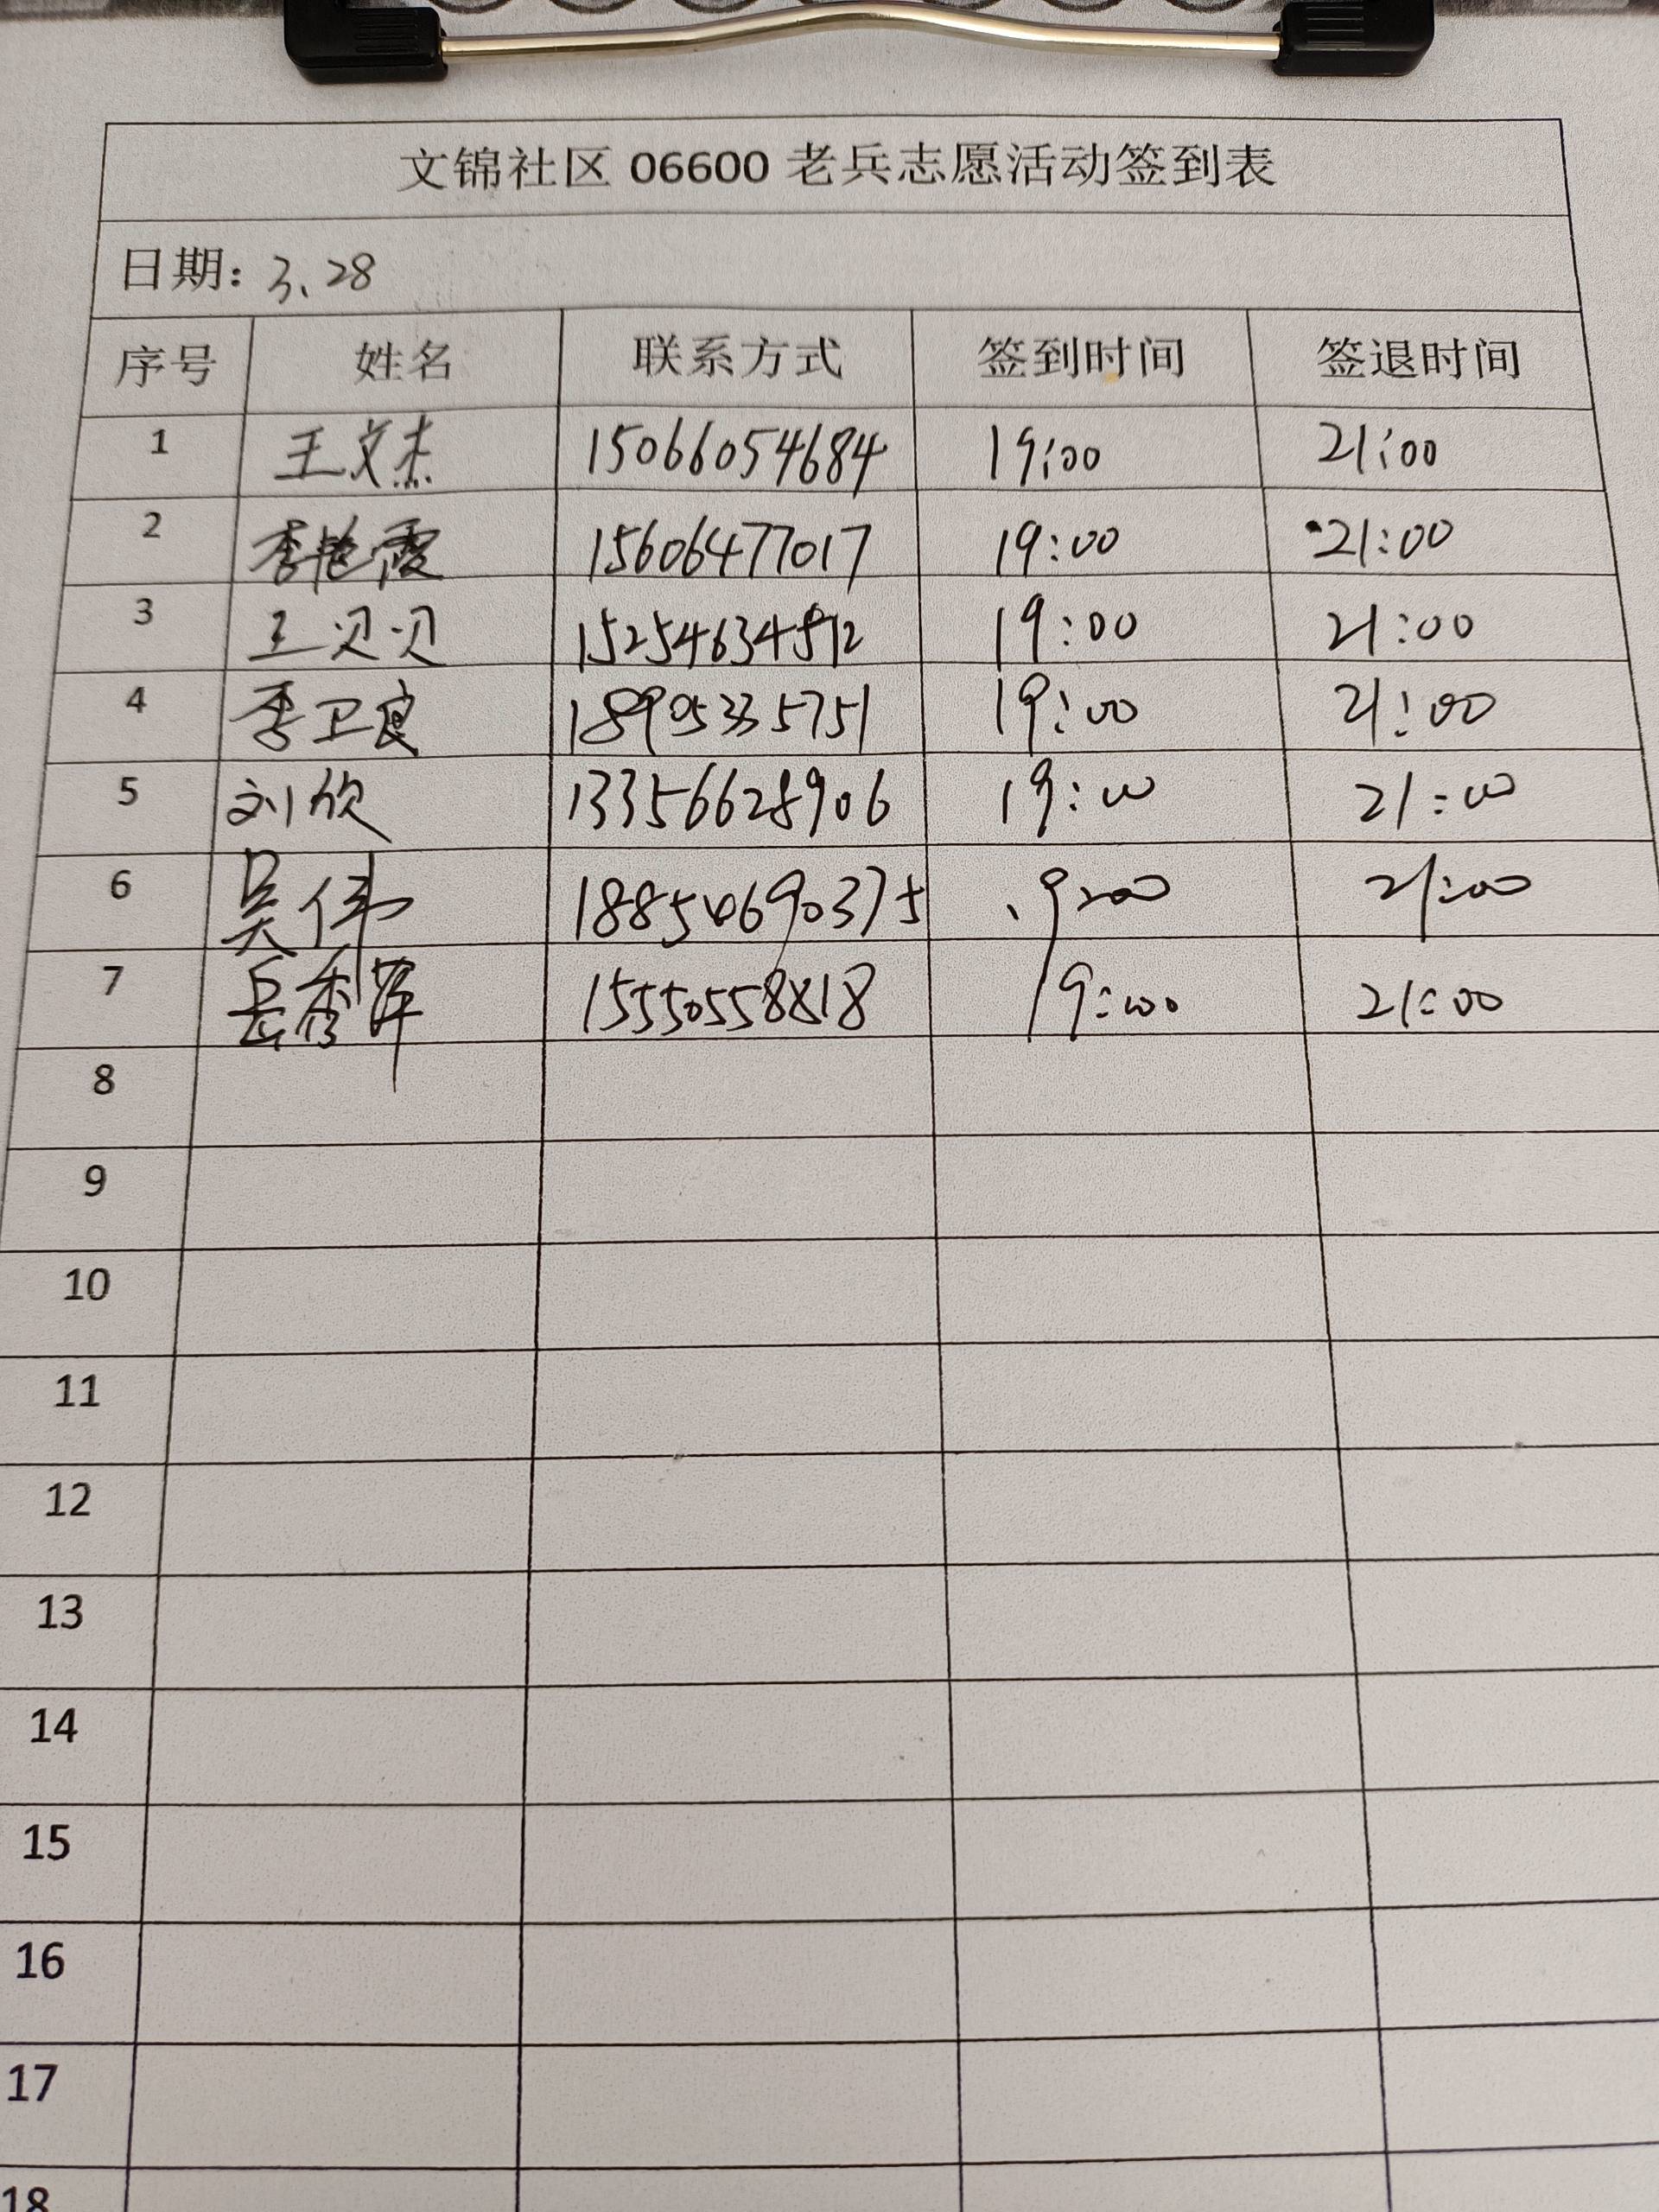 文锦社区 06600 老兵志愿活动签到表
日期: 3、28
序号 姓名 联系方式 签到时间 签退时间
1 王文杰 15066054684 19:00 21:00
2 李艳霞 15606477017 19:00 21:00
3 王贝贝 15254634512 19:00 21:00
4 季卫良 18905335751 19:00 21:00
5 刘欣 13356628906 19:00 21:00
6 吴伟 18854690375 19:00 21:00
7 岳秀萍 15550558818 19:00 21:00
8
9
10
11
12
13
14
15
16
17
18